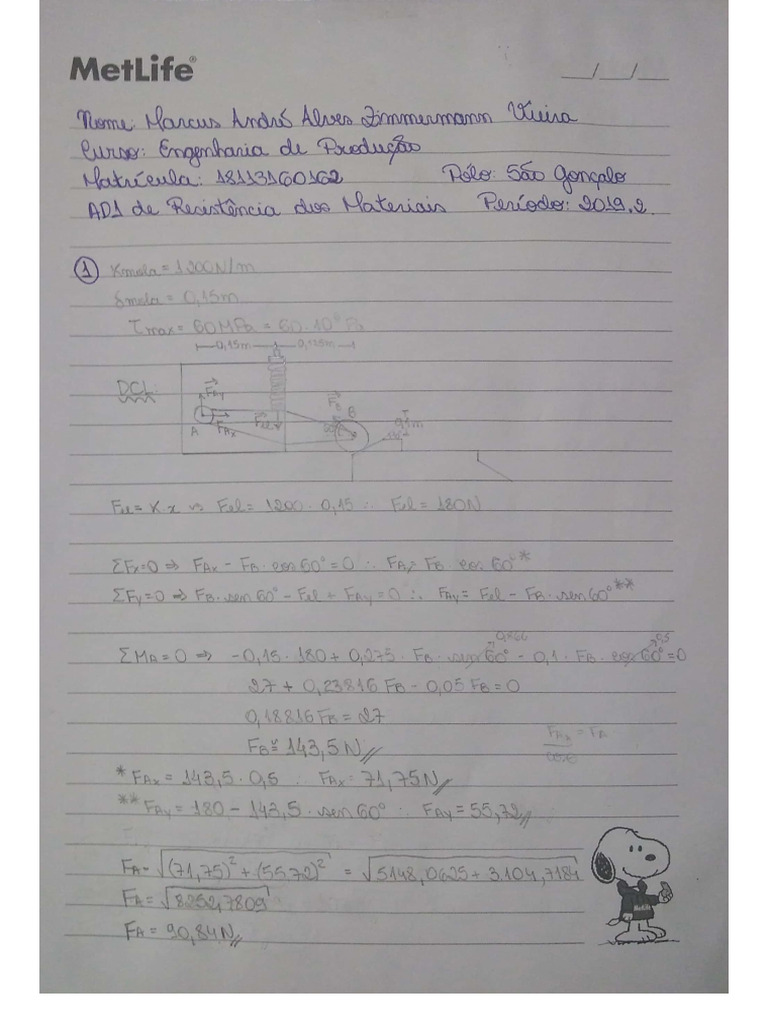 MetLife®
__/__/__
Nome: Marcus André Alves Zimmermann Vieira
Curso: Engenharia de Produção
Matrícula: 18113160162 Pólo: São Gonçalo
AD1 de Resistência dos Materiais Período: 2019.2
① Kmola = 1200N/m
δmola = 0,15m
τmax = 60MPa = 60·10⁶Pa
0,15m 0,125m
DCL:
FAy FB B
A FAx Fel
Fel = K·x Fel = 1200·0,15 ∴ Fel = 180N
ΣFx=0 ⇒ FAx - FB·cos60°=0 ∴ FAx = FB·cos60°*
ΣFy=0 ⇒ FB·sen60° - Fel + FAy=0 ∴ FAy= Fel - FB·sen60°**
0,866 0,5
ΣMA=0 ⇒ -0,15·180 + 0,275·FB·sen60° - 0,1·FB·cos60°=0
27 + 0,23816FB - 0,05FB=0
0,18816FB = 27
FB ≅ 143,5N
FAx = FA
cosθ
*FAx = 143,5·0,5 ∴ FAx = 71,75N
**FAy = 180 - 143,5·sen60° ∴ FAy = 55,72
FA = √(71,75)² + (55.72)² = √5148,0625 + 3.104,7184
FA = √8252,7809
FA = 90,84N